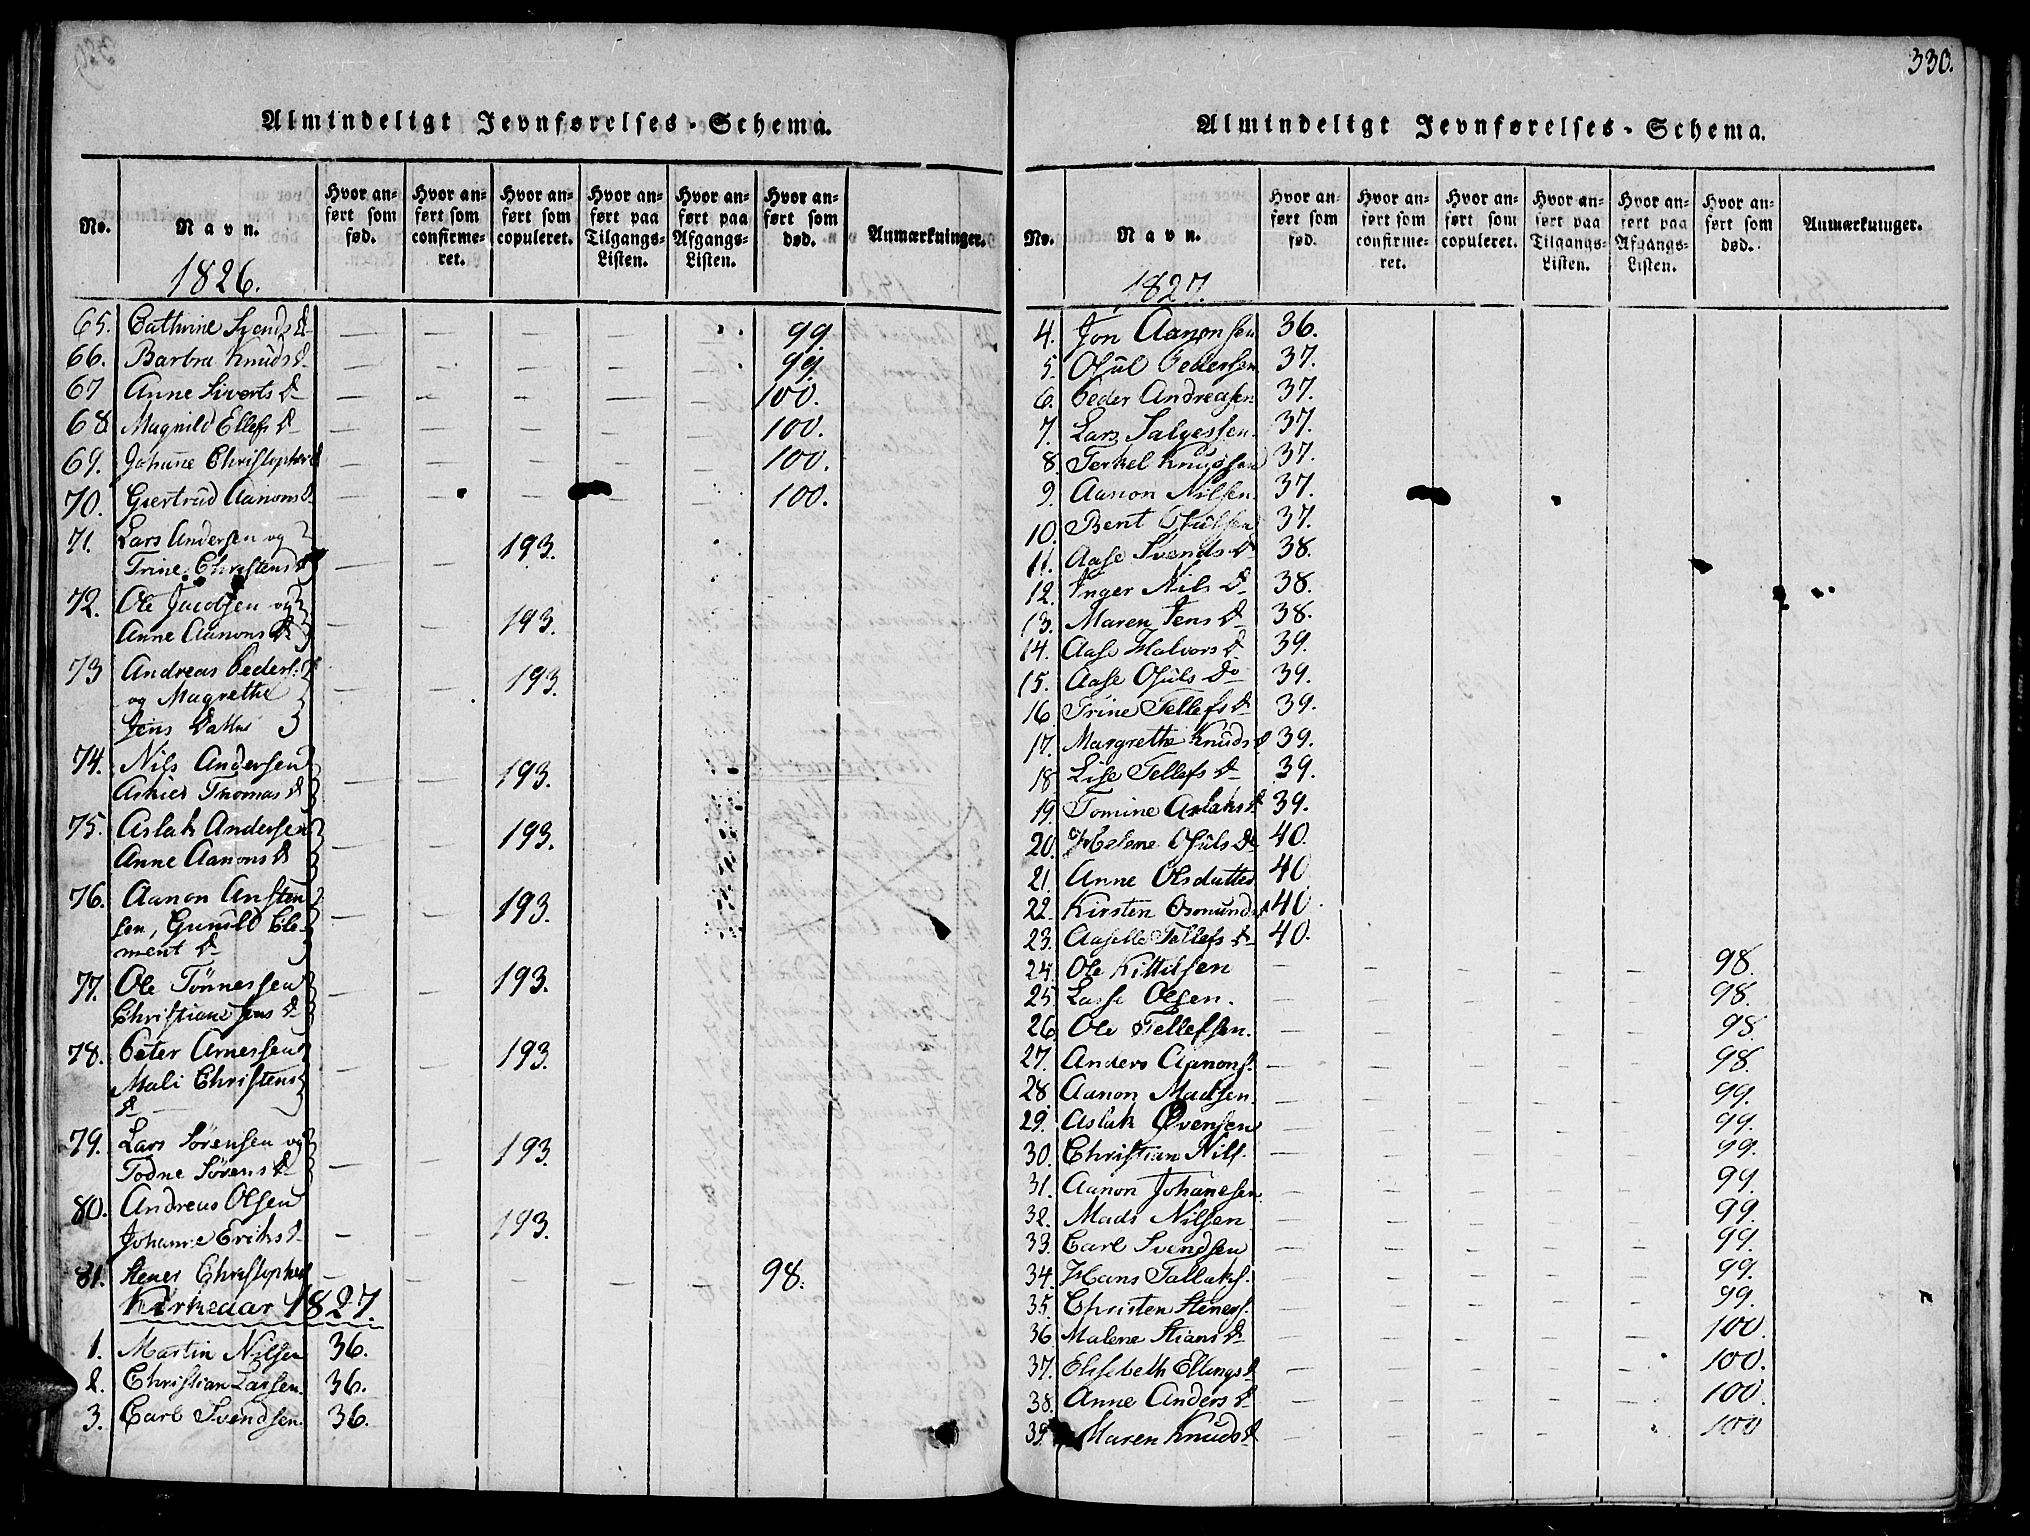 Almindeligt Jevnførelses-Schema.
No. Navn. Hvor anført som fød. Hvor anført som confirmeret. Hvor anført som copuleret. Hvor anført paa Tilgangs-Listen. Hvor anført paa Afgangs-Listen. Hvor anført som død. Anmærkninger.
1826.
65. Cathrine Svends D — — — — 99
66. Barbra Knuds D. — — — — — 99.
67 Anne Siverts D — — — — — 100.
68 Magnild Ellefs D — — — — — 100.
69. Johanne Christopher D — — — — — 100.
70. Giertrud Aanons D — — — — — 100.
71. Lars Andersen og
Trine Christens D — — 193.
72. Ole Jacobsen og
Anne Aanons D — — 193.
73 Andreas Peders.
og Magrethe — — 193.
Jens Datter
74. Nils Andersen
Thomas D — — 193.
75. Aslak Andersen
Anne Aanons D — — 193.
76. Aanon Ansten
sen, Gunild Cle- — — 193.
ment D
77. Ole Tønnessen — — 193.
Christiane Jens D
78. Peter Arnessen — — 193.
Mali Christens
D
79. Lars Sørensen og
Todne Sørens D — — 193.
80. Andreas Olsen
Johanne Eriks D — — 193.
81. Stener Christophers — — — — — 98.
Kirkeaar 1827.
1. Martin Nilsen 36.
2. Christian Larsen. 36.
3. Carl Svendsen. 36.
330.
Almindeligt Jevnførelses-Schema.
No. Navn. Hvor anført som fød. Hvor anført som confirmeret. Hvor anført som copuleret. Hvor anført paa Tilgangs-Listen. Hvor anført paa Afgangs-Listen. Hvor anført som død. Anmærkninger.
1827.
4. Jon Aanonsen 36.
5. Osul Pedersen 37.
6. Peder Andreasen 37.
7. Lars Salvessen. 37.
8. Terkel Knudsen 37.
9. Aanon Nilsen 37.
10. Bent Osulsen 37.
11. Aase Svends D 38.
12. Inger Nils D 38.
13. Maren Jens D 38.
14. Aase Halvors D 39.
15. Aase Osuls Do 39.
16 Trine Tellefs D 39.
17. Margrethe Knuds D 39.
18 Lise Tellefs D 39.
19. Tomine Aslaks D 39.
20. Helene Osuls D 40.
21. Anne Olsdatter 40.
22. Kirsten Osmunds D 40.
23. Aaselle Tellefs D 40.
24. Ole Kittilsen — — — — — 98.
25. Lasse Olsen. — — — — — 98.
26. Ole Tellefsen. — — — — — 98
27. Anders Aanons. — — — — — 98.
28 Aanon Madsen. — — — — — 99.
29. Aslak Øvensen — — — — — 99.
30. Christian Nils. — — — — — 99.
31. Aanon Johanesen. — — — — — 99.
32. Mads Nilsen — — — — — 99.
33. Carl Svendsen — — — — — 99.
34. Hans Tallaks. — — — — — 99.
35. Christen Steners. — — — — — 99.
36. Malene Stians D — — — — — 100.
37. Elisebeth Ellings D — — — — — 100.
38. Anne Anders D — — — — — 100.
39. Maren Knuds D — — — — — 100